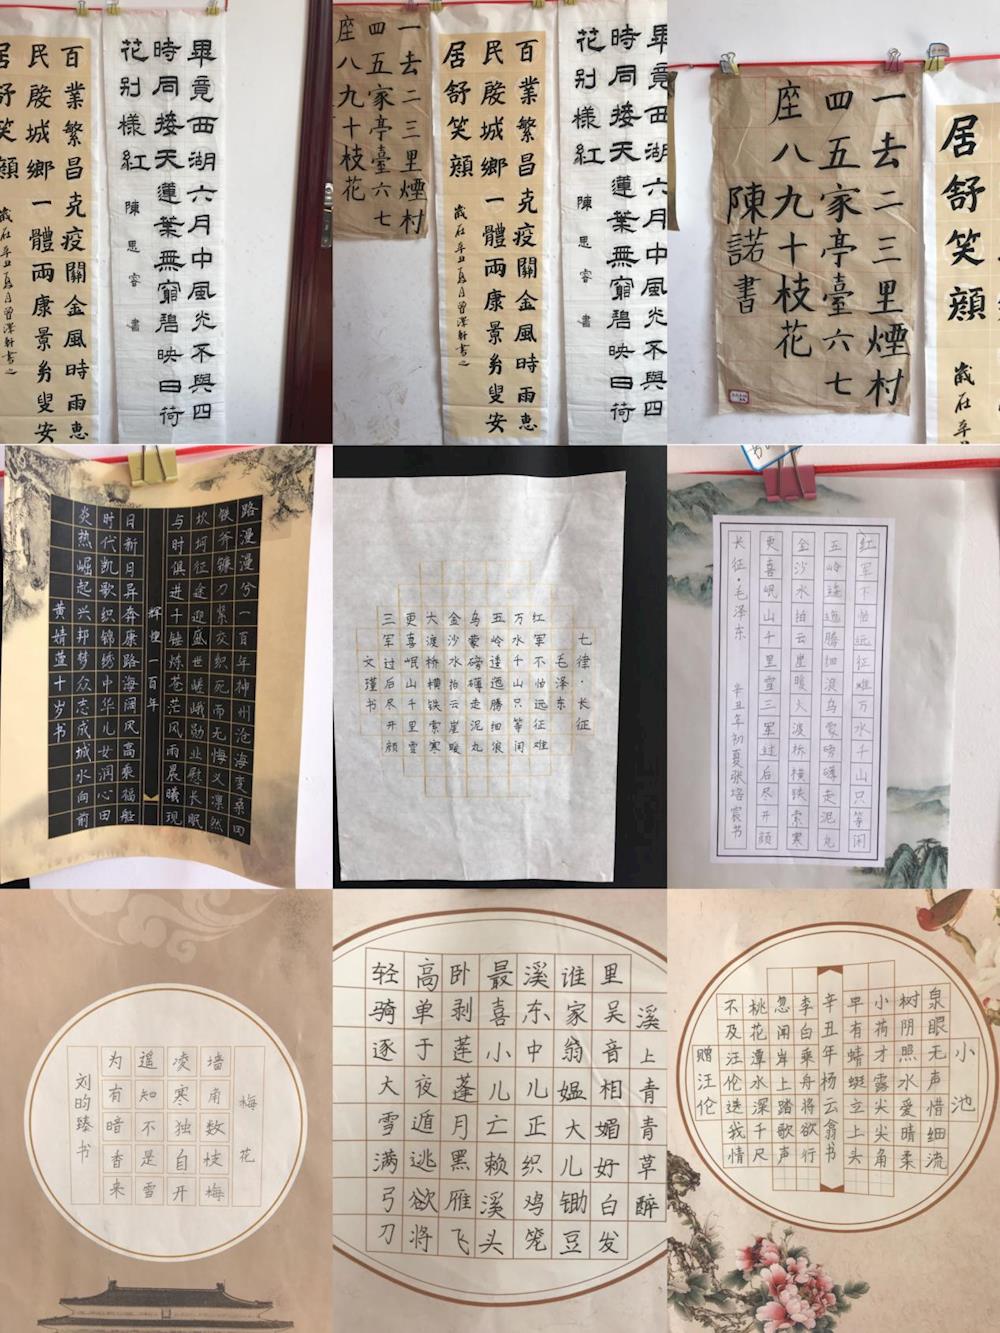 畢竟西湖六月中風光不與四
時同接天蓮葉無窮碧映日荷
花别樣紅 陳思睿書
百業繁昌克疫關金風時雨惠
民殷城鄉一體兩康景 叟安
居舒笑顔
歲在辛丑夏月曾澤軒書之
畢竟西湖六月中風光不與四
時同接天蓮葉無窮碧映日荷
花别樣紅 陳思睿書
百業繁昌克疫關金風時雨惠
民殷城鄉一體兩康景 叟安
居舒笑顔 歲在辛丑夏月曾澤軒書之
一去二三里煙村
四五家亭臺六七
座八九十枝花
居舒笑顔 歲在辛
一去二三里煙村
四五家亭臺六七
座八九十枝花
陳諾書
路漫漫兮一百年神州沧海变桑田
铁斧镰刀紧交织死而无悔义凛然
坎坷征途迎盛世嵯峨勋业慰长眠
与时俱进千锤炼苍茫风雨晨曦现
辉煌一百年
日新日异奔康路海阔风高乘福船
时代凯歌织锦绣中华儿女润心田
炎热崛起兴邦梦众志成城水向前
黄婧萱十岁书
七律·长征
毛泽东
红军不怕远征难
万水千山只等闲
五岭逶迤腾细浪
乌蒙磅礴走泥丸
金沙水拍云崖暖
大渡桥横铁索寒
更喜岷山千里雪
三军过后尽开颜
文瑾书
红军不怕远征难万水千山只等闲
五岭逶迤腾细浪乌蒙磅礴走泥丸
金沙水拍云崖暖大渡桥横铁索寒
更喜岷山千里雪三军过后尽开颜
长征·毛泽东 辛丑年初夏张培宸书
梅花
墙角数枝梅
凌寒独自开
遥知不是雪
为有暗香来
刘昀臻书
溪上青青草醉
里吴音相媚好白发
谁家翁媪大儿锄豆
溪东中儿正织鸡笼
最喜小儿亡赖溪头
卧剥莲蓬月黑雁飞
高单于夜遁逃欲将
轻骑逐大雪满弓刀
小池
泉眼无声惜细流
树阴照水爱晴柔
小荷才露尖尖角
早有蜻蜓立上头
辛丑年杨云翕书
李白乘舟将欲行
忽闻岸上踏歌声
桃花潭水深千尺
不及汪伦送我情
赠汪伦